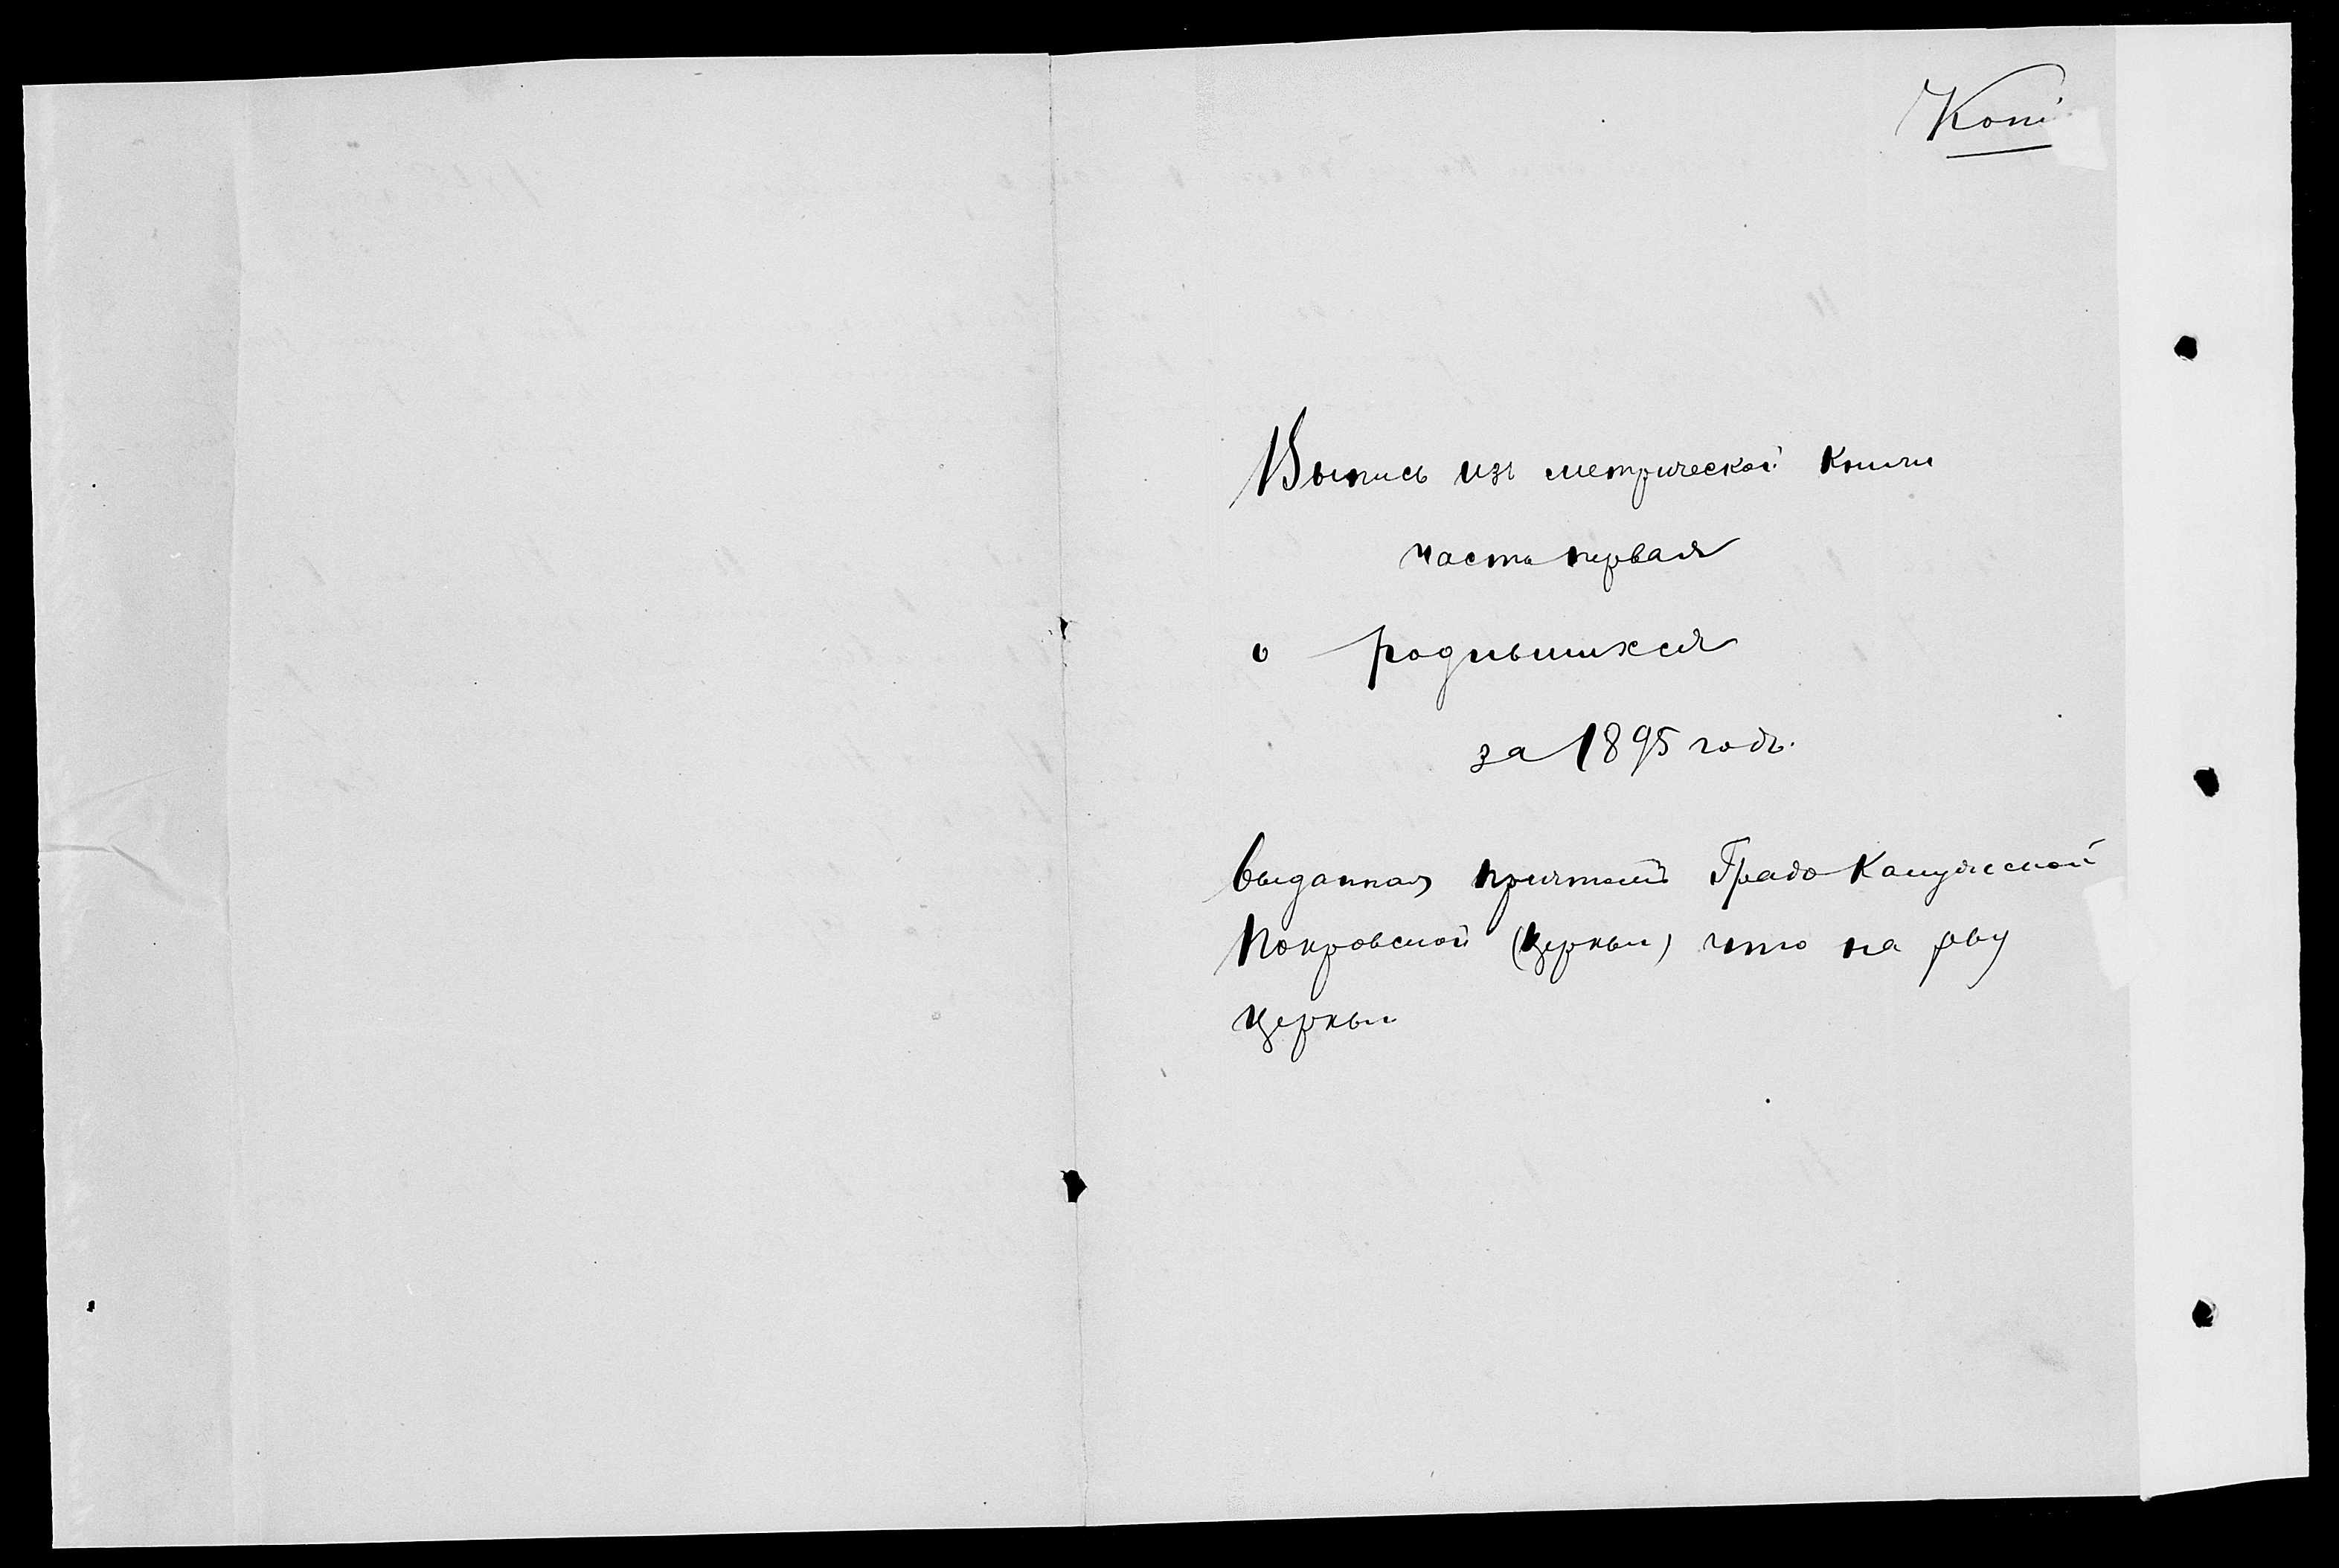 Копі
Выпись изъ метрической книги
часть первая
о родившихся
за 1895 годъ.
выданная причтомъ Градо Калужской
Покровской (церкви) что на рву
церкви